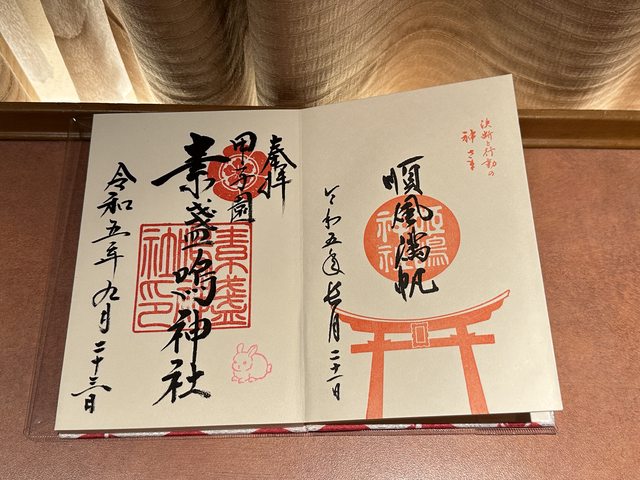 決断と行動の
神さま
順風満帆
令和五年長月
奉拝
甲子園
素盞嗚神社
素盞嗚神社印
令和五年九月二十三日